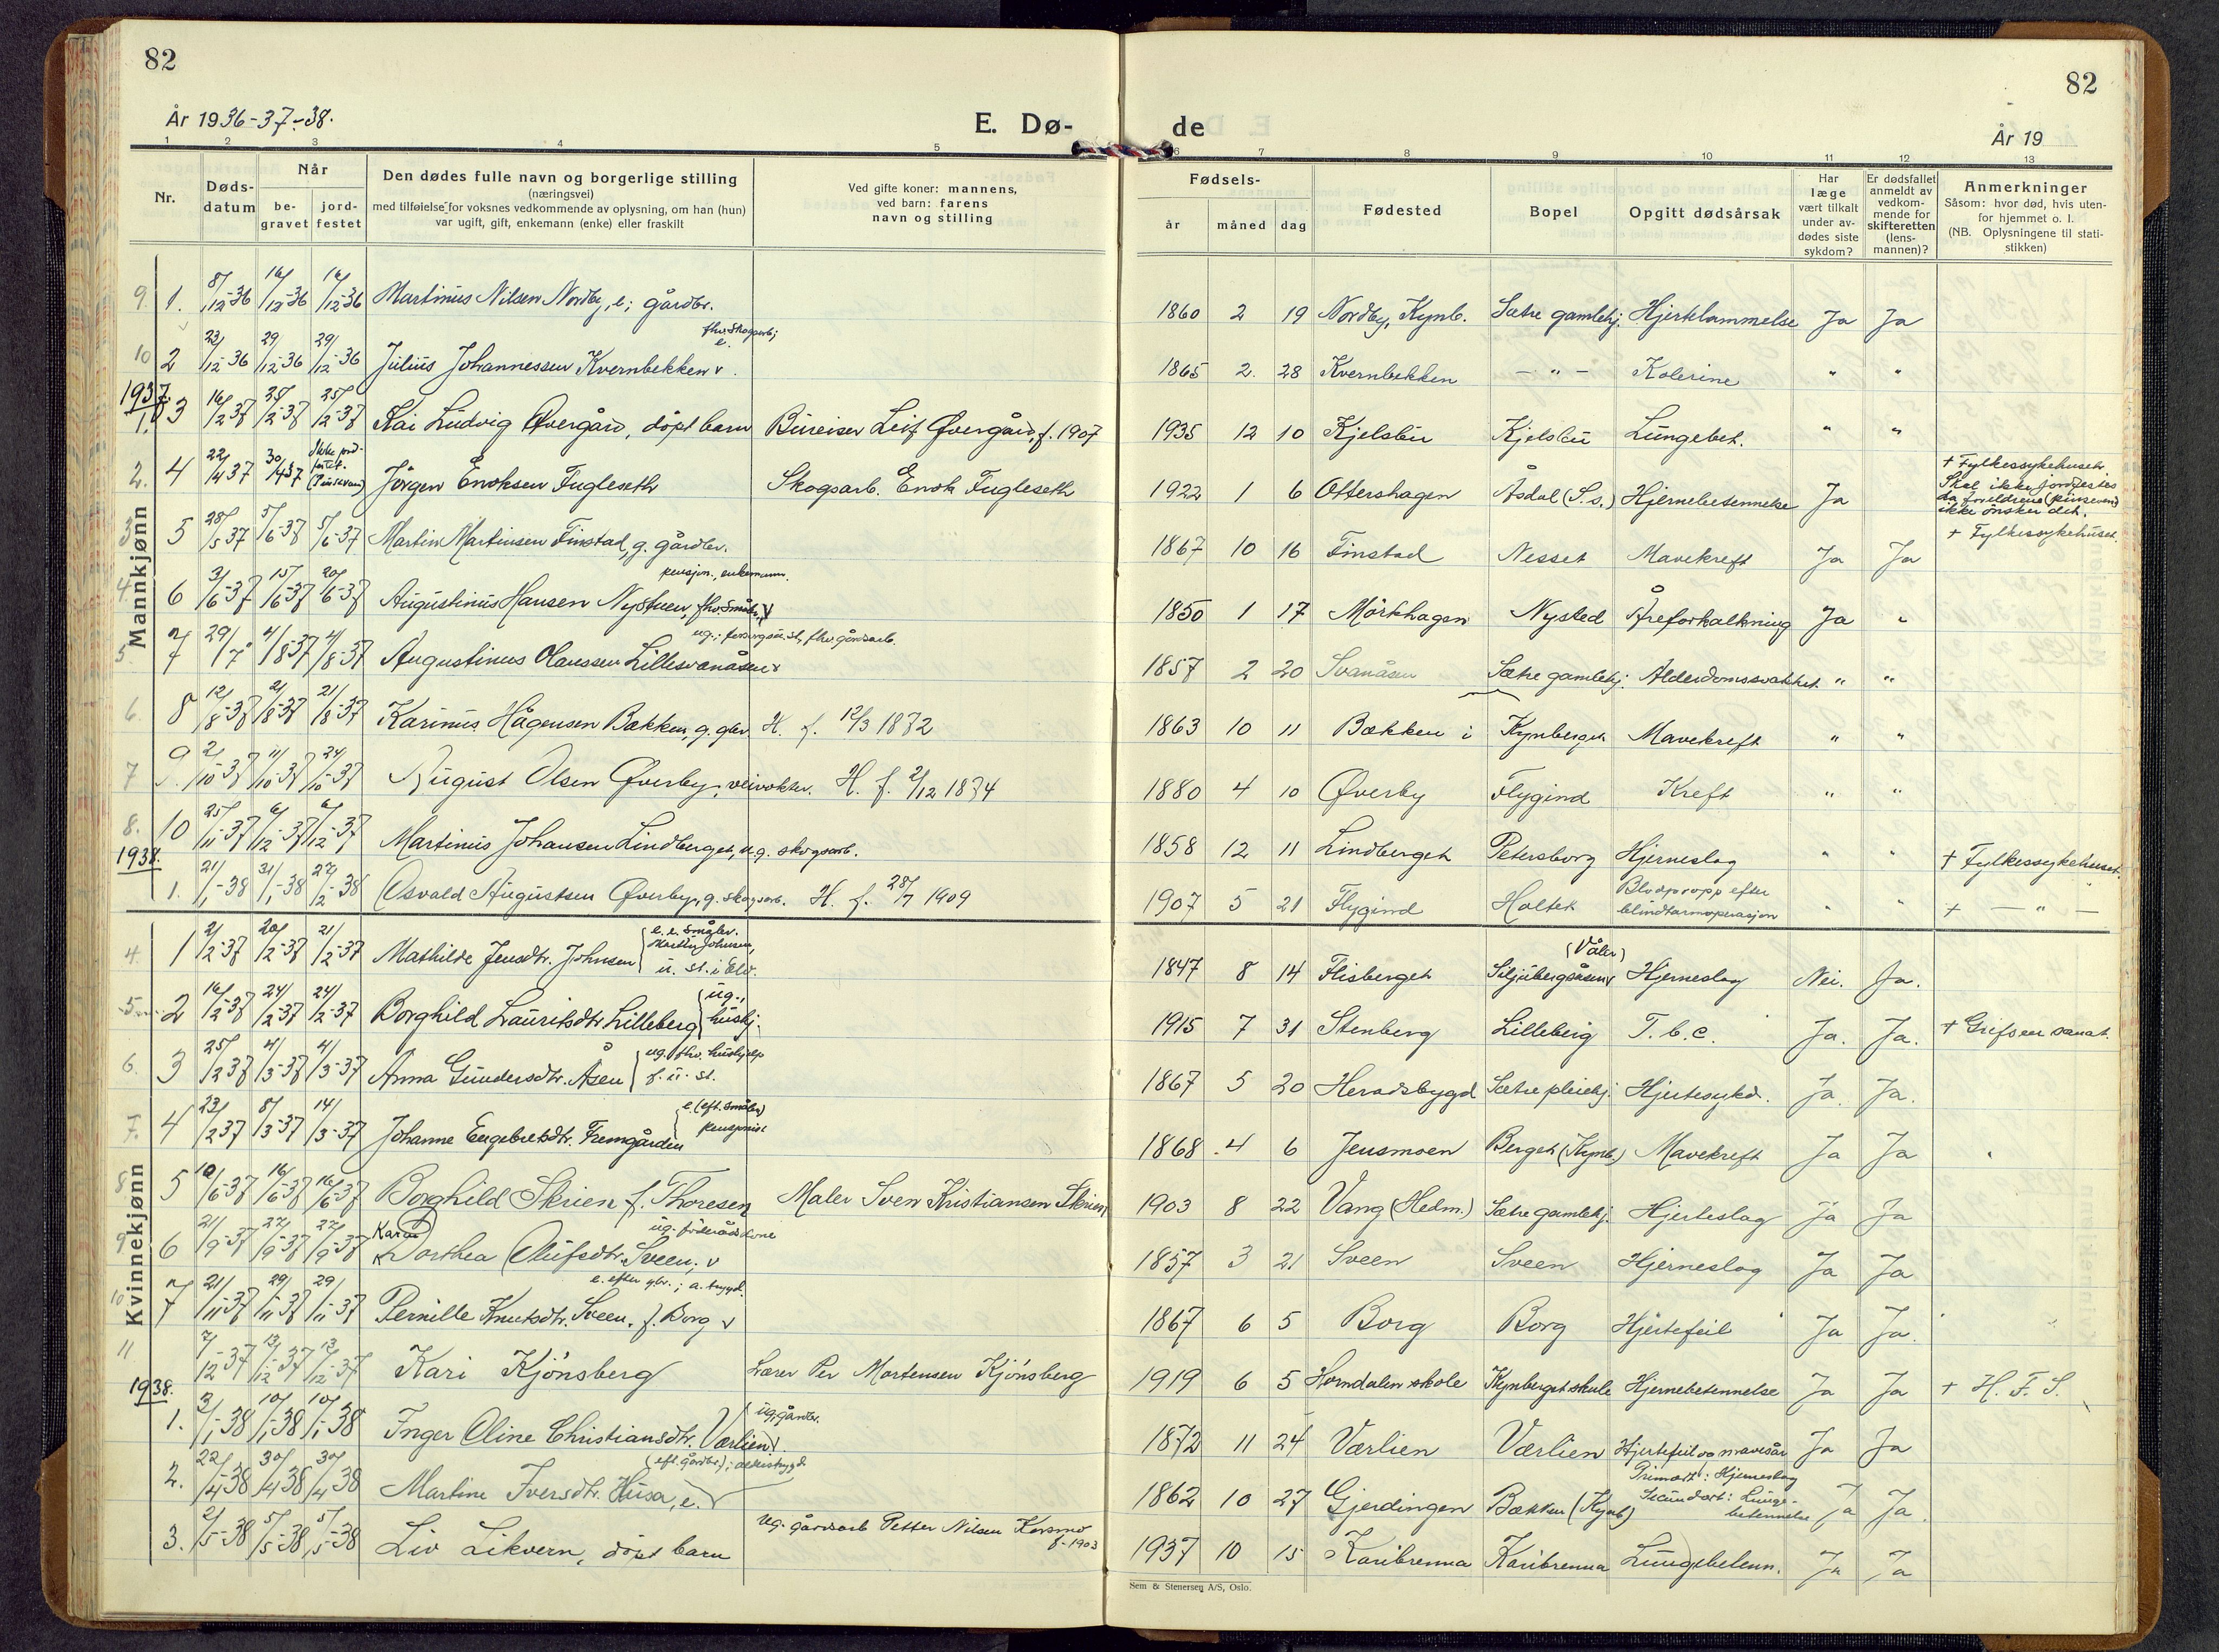 82
82
År 1936-37-38.
E. Dø-
de
År 19
1 2 3 4 5 6 7 8 9 10 11 12 13
Nr.
Døds-
datum
Når
be-
gravet
jord-
festet
Den dødes fulle navn og borgerlige stilling
(næringsvei)
med tilføielse for voksnes vedkommende av oplysning, om han (hun)
var ugift, gift, enkemann (enke) eller fraskilt
Ved gifte koner: mannens,
ved barn: farens
navn og stilling
Fødsels-
år måned dag
Fødested
Bopel
Opgitt dødsårsak
Har
læge
vært tilkalt
under av-
dødes siste
sykdom?
Er dødsfallet
anmeldt av
vedkom-
mende for
skifteretten
(lens-
mannen)?
Anmerkninger
Såsom: hvor død, hvis uten-
for hjemmet o. l.
(NB. Oplysningene til stati-
stikken)
Mannkjønn
9. 1. 8/12-36 16/12-36 16/12-36 Martinus Nilsen Nordby, e; gårdbr. 1860 2 19 Nordby, Kynb. Sætre gamlehj. Hjertelammelse Ja Ja
fhv. skogarb;
e.
10 2 23/12 36 29/12 36 29/12 36 Julius Johannessen Kvernbekken v. 1865 2. 28 Kvernbekken - " - Kolerine " "
1937.
1. 3 16/2 37 25/2-37 25/2-37 Kai Ludvig Øvergård, döpt barn Bureiser Leif Øvergård, f. 1907 1935 12 10 Kjelsbu Kjelsbu Lungebet. " "
2. 4 22/4 37 30/4 37 Ikke jord-
festet.
(Pinsevenn) Jörgen Enoksen Fugleseth Skogsarb. Enok Fugleseth 1922 1 6 Ottershagen Åsdal (S.s.) Hjernebetennelse Ja
+ Fylkessykehuset.
Skal ikke jordfestes
da foreldrene (pinsevenn)
ikke önsker det.
3 5 28/5 37 5/6-37 5/6-37 Martin Martinsen Finstad, g. gårdbr. 1867 10 16 Finstad Nesset Mavekreft Ja Ja + Fylkessykehuset.
pensjon., enkemann.
4 6 3/6-37 15/6-37 20/6-37 Augustinus Hansen Nystuen, fhv. småbr. v 1850 1 17 Mörkhagen Nysted Åreforkalkning Ja "
ug.; forsorgsu.st, fhv. gårdsarb.
5. 7 29/7 4/8 37 4/8-37 Augustinus Olaussen Lillesvanåsen v 1857 2 20 Svanåsen Sætre gamlehj. Alderdomssvakhet. " "
6. 8 12/8-37 21/8-37 21/8-37 Karinus Hågensen Bakken, g. gbr. H. f. 12/3 1872 1863 10 11 Bakken i Kynberget Mavekreft " "
7 9 2/10-37 11/10-37 24/10-37 August Olsen Øverby, veivokter. H. f. 2/12 1874 1880 4 10 Øverby Flygind Kreft " "
8. 10 25/11-37 6/12-37 6/12-37 Martinus Johansen Lindberget, ug. skogsarb. 1858 12 11 Lindberget Petersborg Hjerneslag " " + Fylkessykehuset.
1938.
1. 21/1-38 31/1-38 27/2-38 Osvald Augustsen Øverby, g. skogsarb. H. f. 28/7 1909 1907 5 21 Flygind Holtet Blodpropp efter
blindtarmoperasjon " " + - " -
Kvinnekjønn
4. 1 2/2-37 20/2-37 21/2-37 Mathilde Jensdtr. Johnsen e. e. småbr.
u. st. i Elv. 1847 8 14 Flisberget Siljubergsåsen (Våler) Hjerneslag Nei. Ja.
5 2 16/2-37 24/2 37 24/2-37 Borghild Lauritsdtr Lilleberg ug.,
hushj. 1915 7 31 Stenberg Lilleberg T.b.c. Ja. Ja. + Grefsen sanat.
6. 3 25/2 37 4/3-37 4/3-37 Anna Gundersdtr. Åsen ug. fhv. hushjelp
f. u. st. 1867 5 20 Heradsbygd Sætre pleiehj. Hjertesykd. Ja. Ja.
7. 4 23/2 37 8/3 37 14/3-37 Johanne Engebretsdtr. Fremgården e. (eft. småbr)
pensjonist 1868 4 6 Jensmoen Berget (Kynb.) Mavekreft Ja Ja
8 5 10/6-37 16/6-37 16/6-37 Borghild Skrien f. Thoresen Maler Sven Kristiansen Skrien 1903 8 22 Vang (Hedm.) Sætre gamlehj. Hjerteslag Ja Ja
Karen ug. föderådskone
9 6 21/9-37 27/9-37 27/9-37 Dorthea Olufsdtr. Sveen, v 1857 3 21 Sveen Sveen Hjerneslag Ja Ja
e. efter gbr.; a. trygd.
10 7 21/11-37 29/11 37 29/11 37 Pernille Knutsdtr. Sveen. f. Borg v 1867 6 5 Borg Borg Hjertefeil Ja Ja.
11 7/12-37 13/12-37 13/12-37 Kari Kjönsberg Lærer Per Mortensen Kjönsberg 1919 6 5 Horndalen skole Kynberget skule Hjernebetennelse Ja Ja + H. F. S.
1938.
1. 3/1-38 10/1-38 10/1-38 Inger Oline Christiansdtr. Værlien v. ug, gårdbr. 1872 11 24 Værlien Værlien Hjertefeil og mavesår Ja Ja
(eft. gårdbr.); alderstrygd
2. 22/4 38 30/4 38 30/4 38 Martine Iversdtr. Husa, e. v 1862 10 27 Gjerdingen Bakken (Kynb) Primært: Hjerneslag
Secundært: Lunge-
betennelse Ja Ja
3. 2/5-38 5/5-38 5/5-38 Liv Likvern, döpt barn Ug. gårdsarb Petter Nilsen Korsmo
f. 1903 1937 10 15 Karibrenna Karibrenna Lungebetenn. Ja Ja
Sem & Stenersen A/S, Oslo.